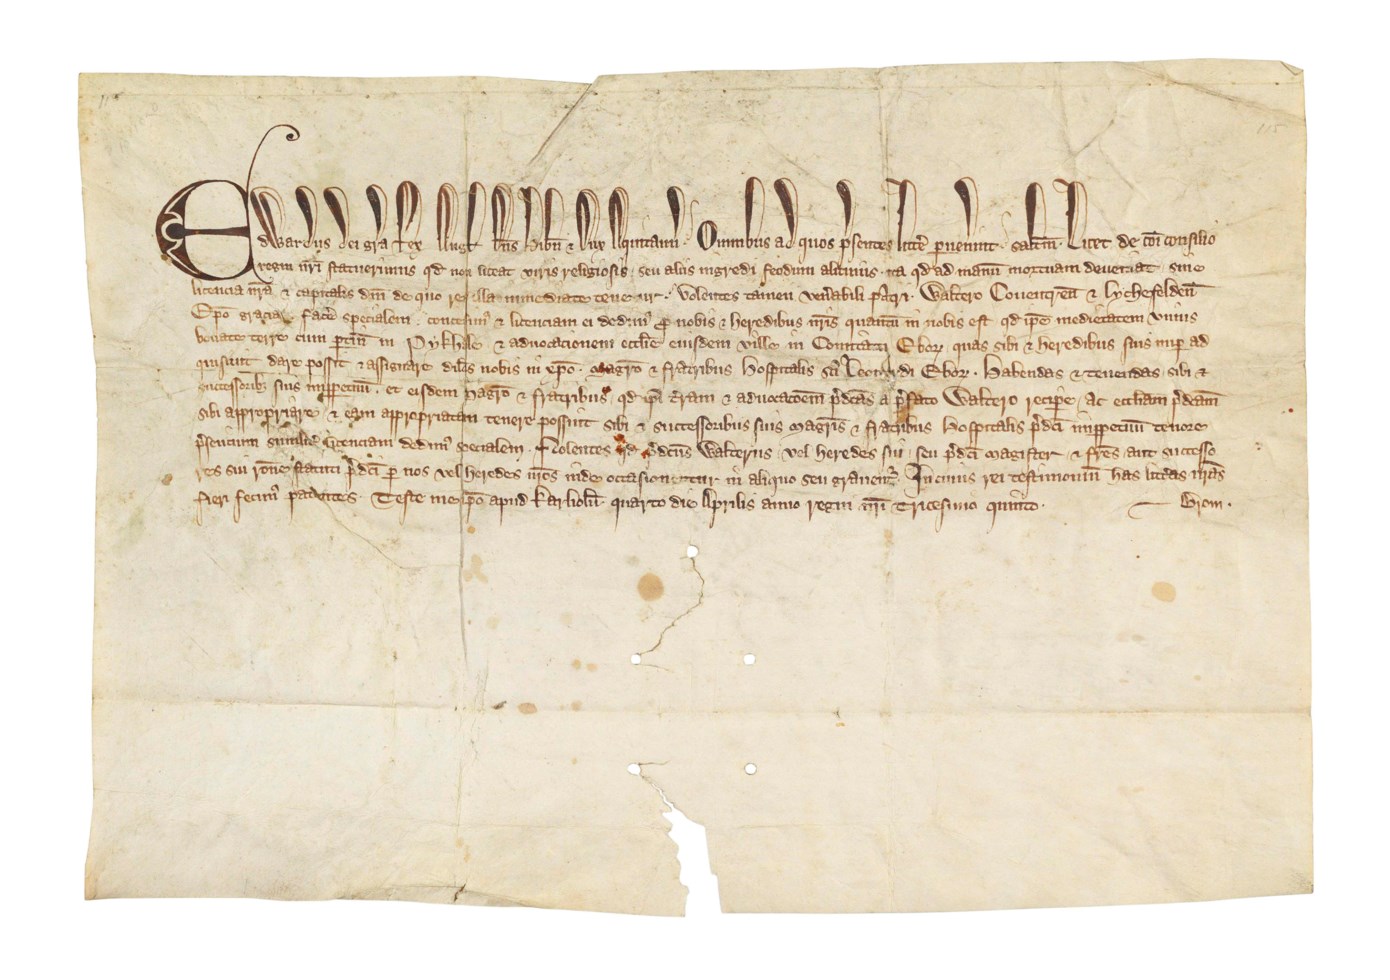 Edwardus dei gra Rex Angl Dns Hibn & Dux Aquitann. Omnibus ad quos psentes littre pervenint. saltm. Licet de coi consilio
regni nri statuerimus qd non liceat viris religiosis, seu aliis ingredi feodum alicuius, ita qd ad manu mortuam deveniat, sine
licencia nra & capitalis dni de quo res illa inmediate tenetur. Volentes tamen venabili patri. Waltero Coventren & Lychefelden
Epo graciam facere specialem, concessim & licenciam ei dedim p nobis & heredibus nris quantu in nobis est qd ipe medietatem unius
bovate terre cum ptin in Pykhale & advocationem ecclie eiusdem ville in Comitatu Ebor quas sibi & heredibus suis nup ad
quisiunt dare possit & assignare dilcis nobis in xpo. Magro & fratribus Hospitalis Sci Leonardi Ebor. Habendas & tenendas, sibi &
successorib; suis imppetuu. et eisdem Magro & fratribus, qd ipi tram & advocacoem pdcas a pfato Waltero recipe, ac eccliam pdcam
sibi appropriare & eam appropriatam tenere possint sibi & successoribus suis Magris & fratribus Hospitalis pdci imppetuu tenore
psencium similit licenciam dedim specialem. Nolentes qd pdcus Walterus, vel heredes sui, seu pdci Magister & fres aut successo
res sui rone statuti pdci p nos vel heredes nros inde occasionentur in aliquo seu gravent. In cuius rei testimoniu has litras nras
fieri fecim patentes. Teste me ipo apud Karliolu quarto die Aprilis anno regni nri Tricesimo quinto.
115